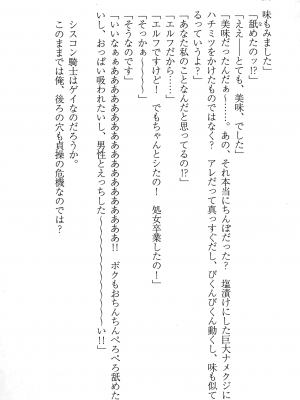 味みました」
「舐めたのッ!?」
「ええ――とても、美味、でした」
「美味だったんだぁ～～……。あの、それ本当にちんぽだった？　塩漬けにした巨大ナメクジに
ハチミツをかけたものではなく？　アレだって真っすぐだし、びくんびくん動くし、味も似て
るっていうよ？」
「あなた私のことなんだと思ってるの!?」
「エルフだから……」
「エルフですけど！　でもちゃんとシたの！　処女卒業したの！」
「そっかぁ～～～～」
「そうなのです」
「いいなぁぁあああああああああああああああああ!!　ボクもおちんちんぺろぺろ舐めた
いし、おっぱい吸われたいし、男性とえっちした～～～～～～～～～～～い!!」
シスコン騎士はゲイなのだろうか。
このままでは俺、後ろの穴も貞操の危機なのでは？